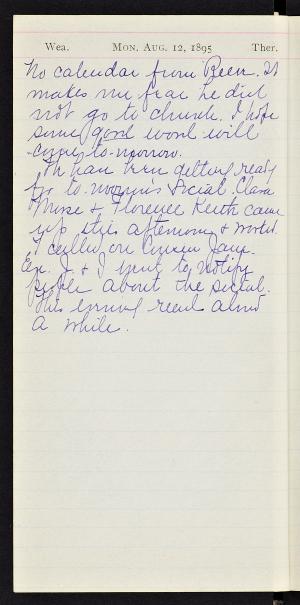 Wea. Mon. Aug. 12, 1895 Ther.
No calendar from Reen. It
makes me fear he did
not go to church. I hope
some good word will
come to-morrow.
Oh have been getting ready
for to-morrow's Social. Clara
Muse & Florence Keith came
up this afternoon & worked.
I called on Jane.
Em. J. & I went to notify
people about the social.
This evening read aloud
a while.